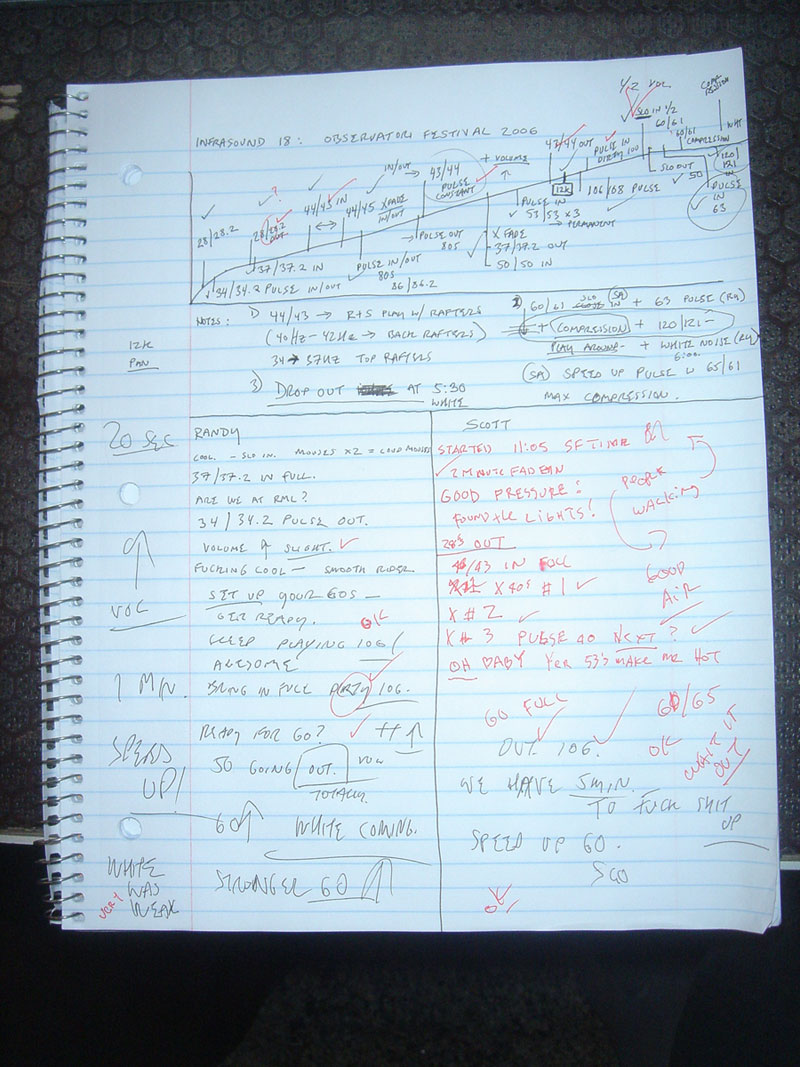 INFRASOUND 18: OBSERVATORI FESTIVAL 2006
1/2 VOL
SLO IN 1/2
60/61
60/61
COMPRESSION
WHT
43/44 OUT
PULSE IN
DIRTY 106
SLO OUT
50
120/121
IN
PULSE
IN
63
12K
106/108 PULSE
+ VOLUME
43/44
PULSE
CONSTANT
IN/OUT
44/45 XFADE
IN/OUT
44/43 IN
?
28/28.2
OUT
28/28.2
PULSE IN
53/53 X 3
PERMANENT
X FADE
37/37.2 OUT
50/50 IN
PULSE OUT
80S
PULSE IN/OUT
80S
86/86.2
37/37.2 IN
34/34.2 PULSE IN/OUT
NOTES:
1) 44/43 → R+S PLAY W/ RAFTERS
(40HZ - 42HZ → BACK RAFTERS)
34 → 37HZ TOP RAFTERS
3) DROP OUT AT 5:30
WHITE
12K
PAN
2) 60/61 SLO IN (SA) + 63 PULSE (RY)
+ COMPRESSION + 120/121 -
PLAY AROUND - + WHITE NOISE (RY)
6:00.
(SA) SPEED UP PULSE W 65/61
MAX COMPRESSION.
20 SEC
VOL
1 MIN.
SPEED
UP!
WHITE
WAS
VERY WEAK
RANDY
COOL - SLO IN. MOUSES X2 = LOUD MOUSES
37/37.2 IN FULL.
ARE WE AT RML?
34/34.2 PULSE OUT.
VOLUME ↑ SLIGHT.
FUCKING COOL - SMOOTH RIDER
SET UP YOUR 60S -
GET READY. OK
KEEP PLAYING 106!
AWESOME
BRING IN FULL DIRTY 106.
READY FOR 60? ++ ↑
50 GOING OUT.
TOTALLY.
60 ↑ WHITE COMING.
STRONGER 60 ↑
SCOTT
STARTED 11:05 SF TIME
2 MINUTE FADE IN
GOOD PRESSURE!
FOUND THE LIGHTS!
28S OUT
PEOPLE
WALKING
/43 IN FULL
X 40S #1
X #2
X # 3 PULSE 40 NEXT?
GOOD
AIR
OH BABY YER 53'S MAKE ME HOT
GO FULL
OUT 106.
60/65
OK
WE HAVE 5 MIN.
TO FUCK SHIT
UP
SPEED UP 60.
OK